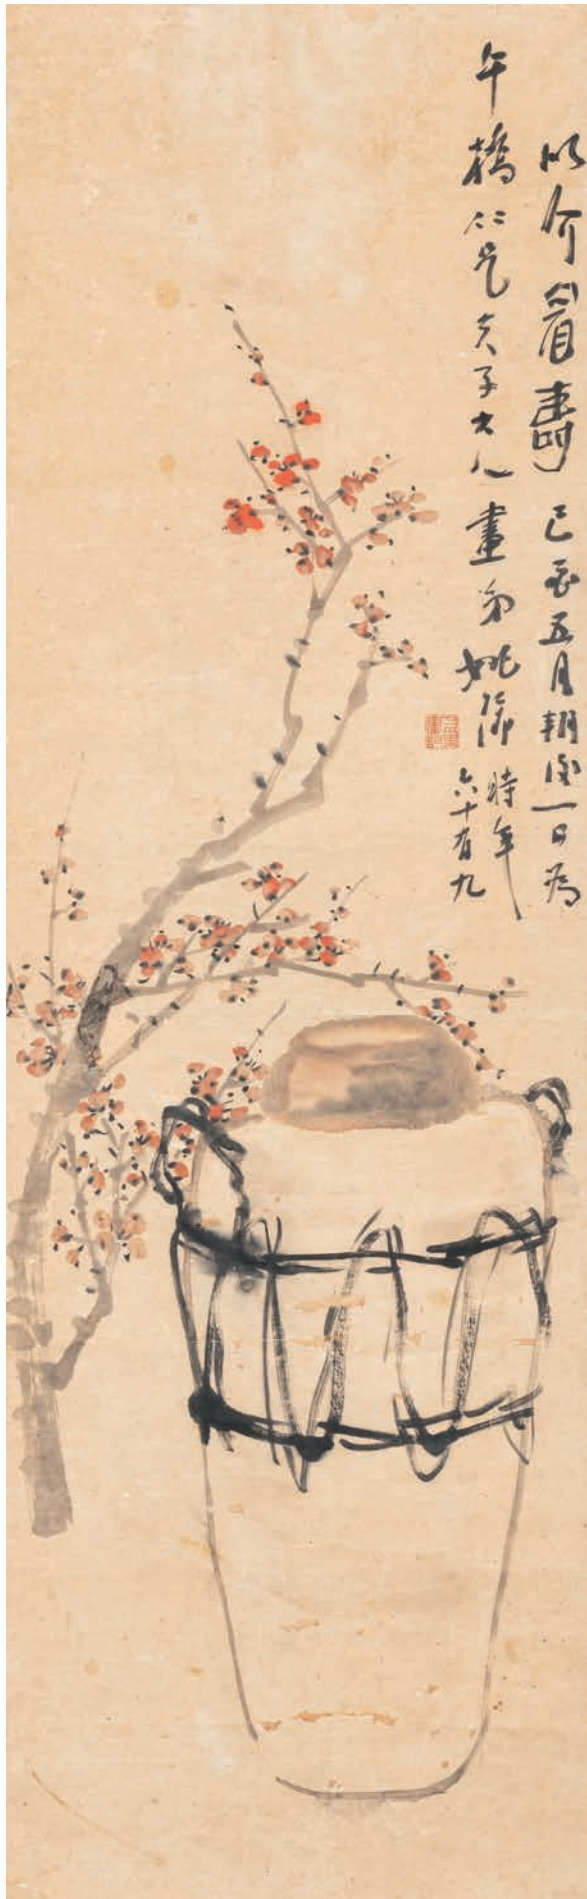 以介眉壽己酉五月朔後一日為
午橋仁兄夫子大人畫弟姚
時年
六十有九